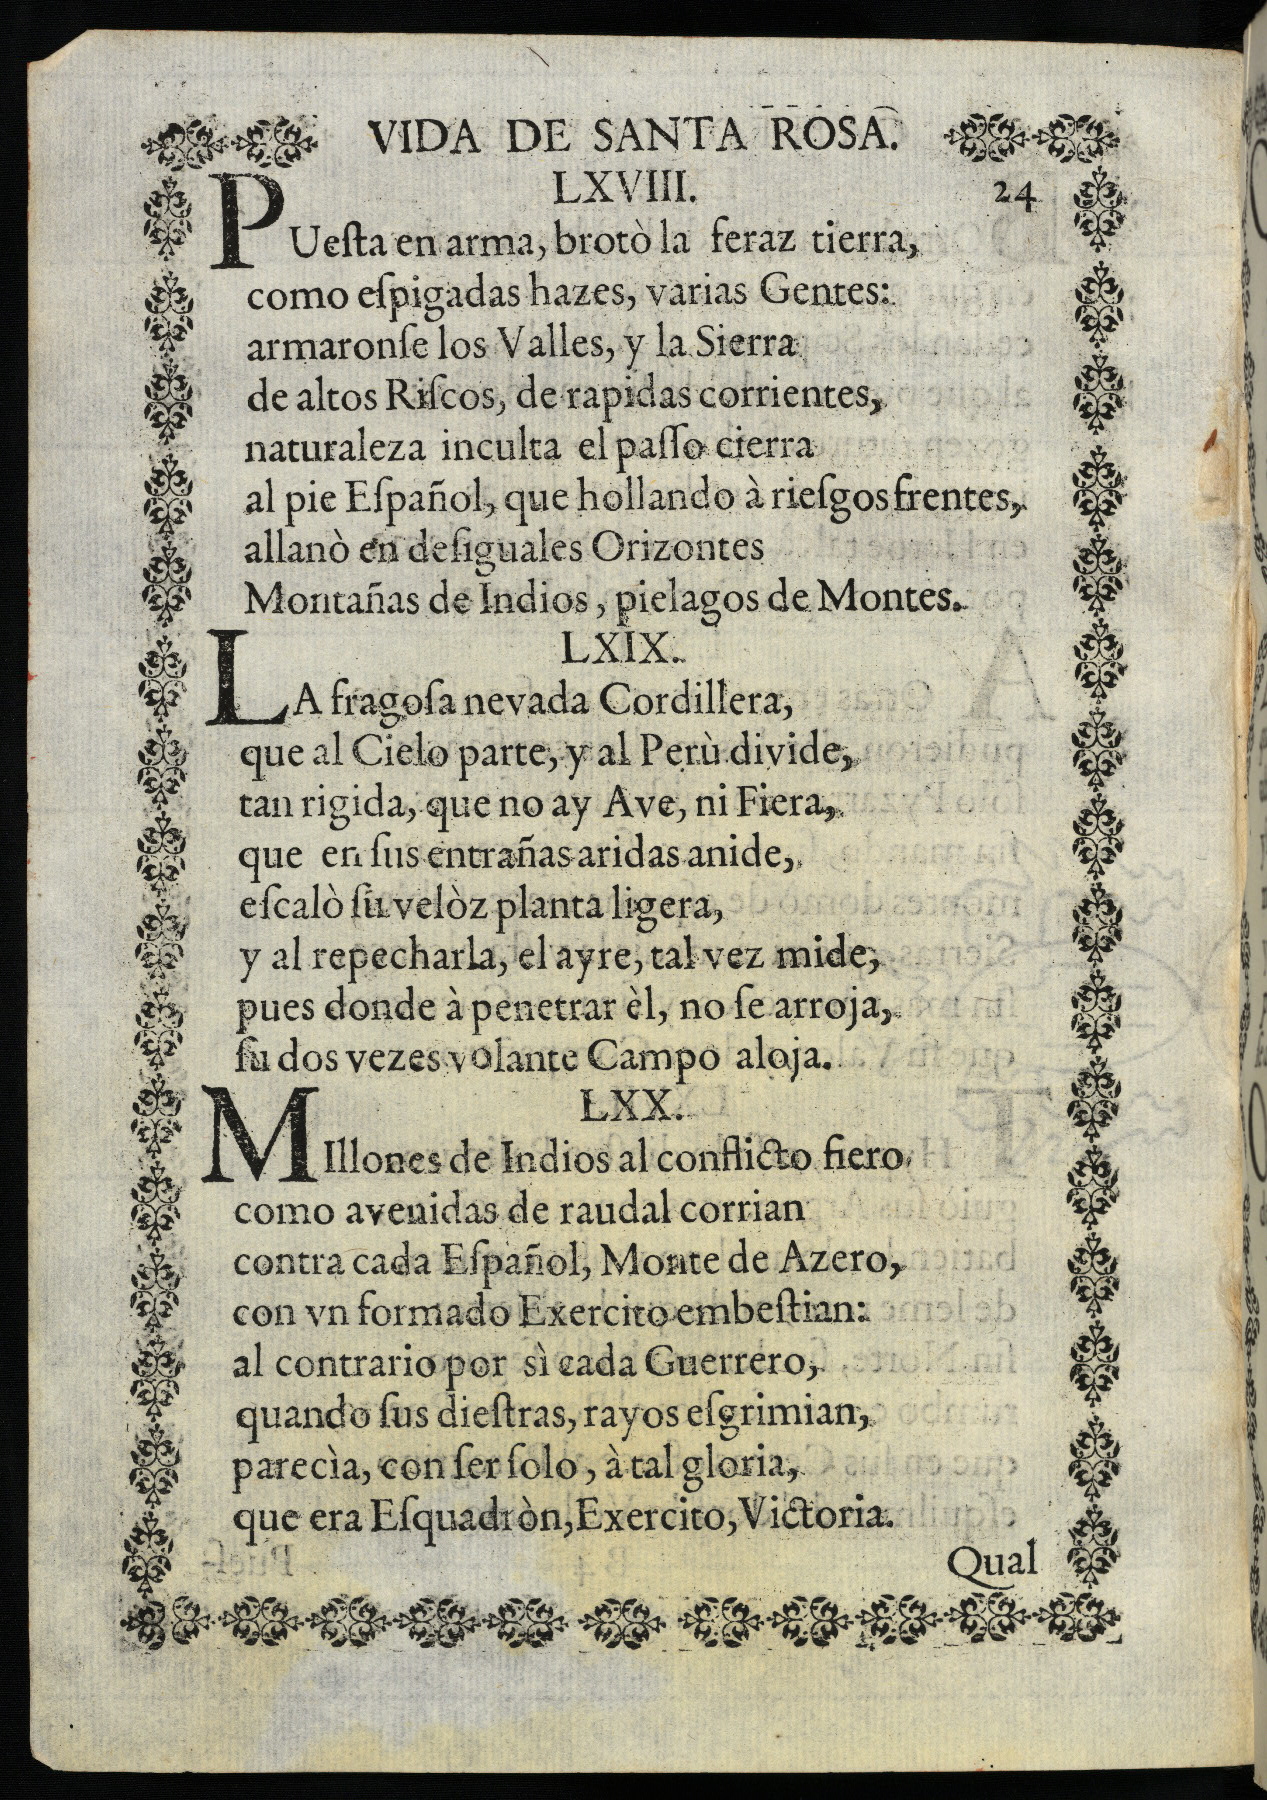 VIDA DE SANTA ROSA.
LXVIII. 24
PUeſta en arma, brotò la feraz tierra,
como eſpigadas hazes, varias Gentes:
armaronſe los Valles, y la Sierra
de altos Riſcos, de rapidas corrientes,
naturaleza inculta el paſſo cierra
al pie Eſpañol, que hollando à rieſgos frentes,
allanò en deſiguales Orizontes
Montañas de Indios, pielagos de Montes.
LXIX.
LA fragoſa nevada Cordillera,
que al Cielo parte, y al Perù divide,
tan rigida, que no ay Ave, ni Fiera,
que en ſus entrañas aridas anide,
eſcalò ſu velòz planta ligera,
y al repecharla, el ayre, tal vez mide,
pues donde à penetrar èl, no ſe arroja,
ſu dos vezes volante Campo aloja.
LXX.
MIllones de Indios al conflicto fiero
como avenidas de raudal corrian
contra cada Eſpañol, Monte de Azero,
con vn formado Exercito embeſtian:
al contrario por sì cada Guerrero,
quando ſus dieſtras, rayos eſgrimian,
parecìa, con ſer ſolo, à tal gloria,
que era Eſquadròn, Exercito, Victoria.
Qual